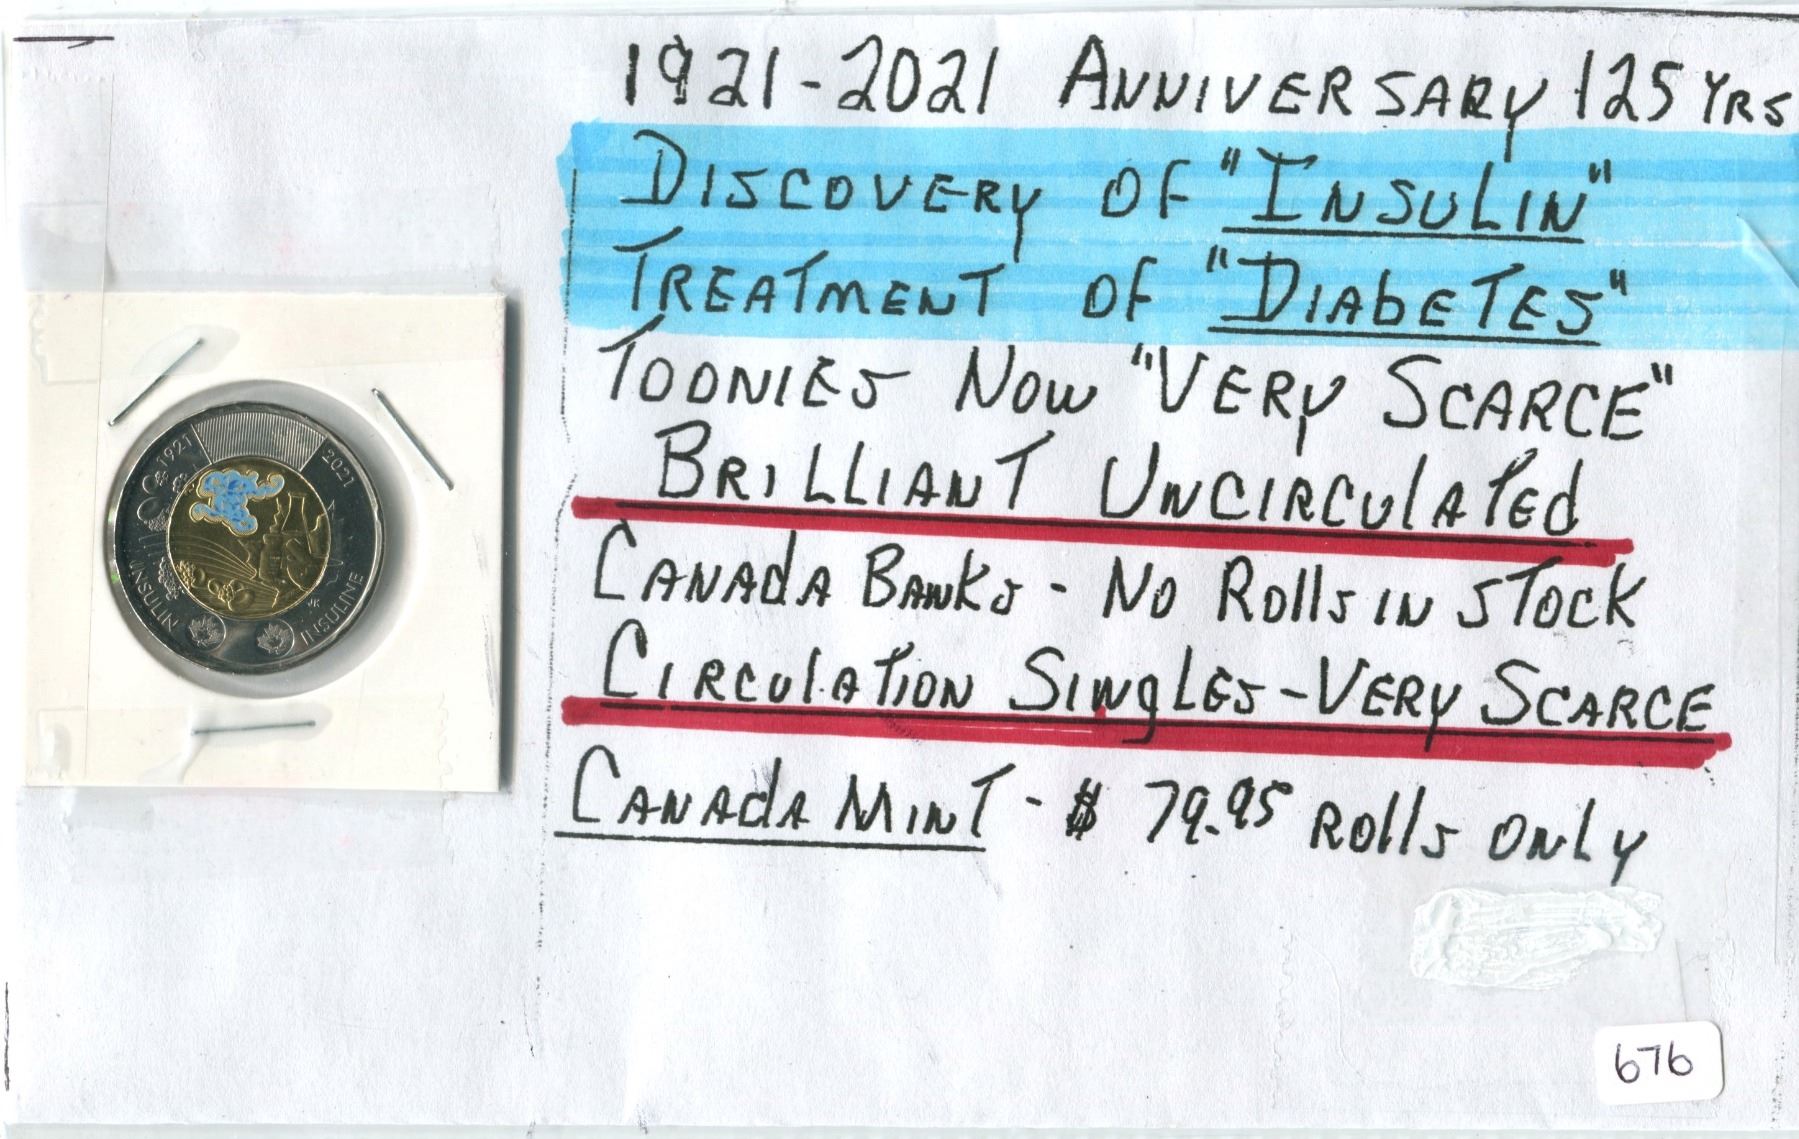 1921-2021 ANNIVERSARY 125 YRS
DISCOVERY OF "INSULIN"
TREATMENT OF "DIAbETES"
TOONIES NOW "VERY SCARCE"
BRILLIANT UNCIRCULATEd
CANAdA BANKS - NO ROllS IN STOCK
CIRCULATION SINgLES - VERY SCARCE
CANAdA MINT - $ 79.95 ROllS ONLY
1921
2021
INSULIN
INSULINE
676